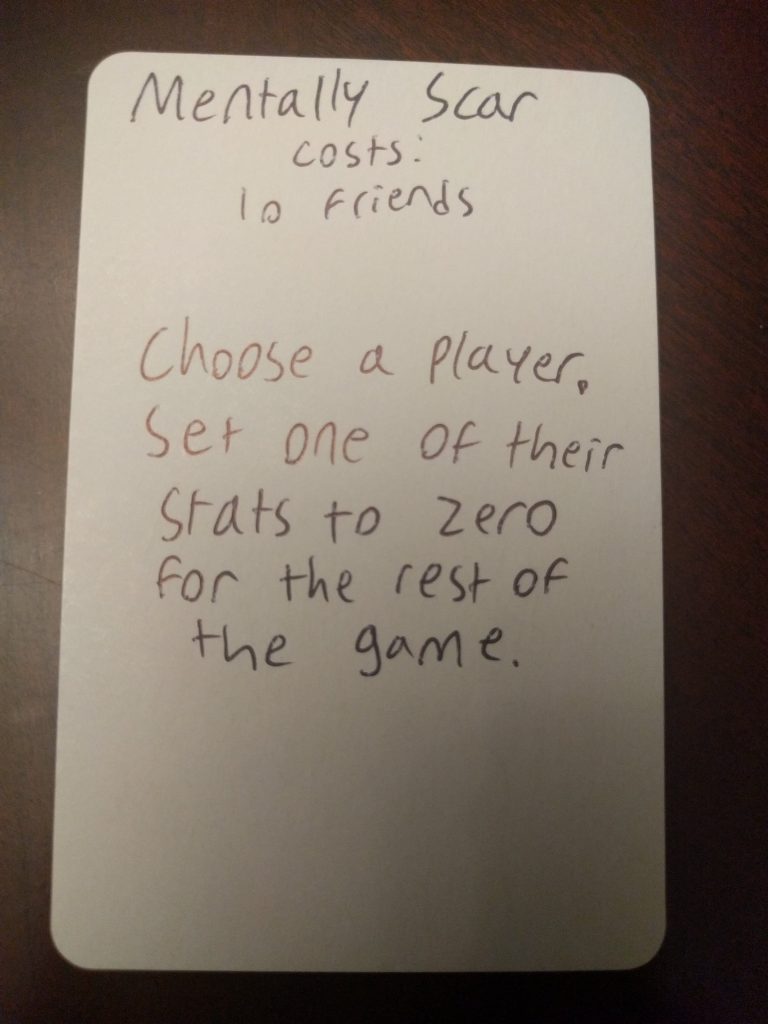 Mentally Scar
costs:
10 Friends
Choose a player.
Set one of their
stats to zero
for the rest of
the game.